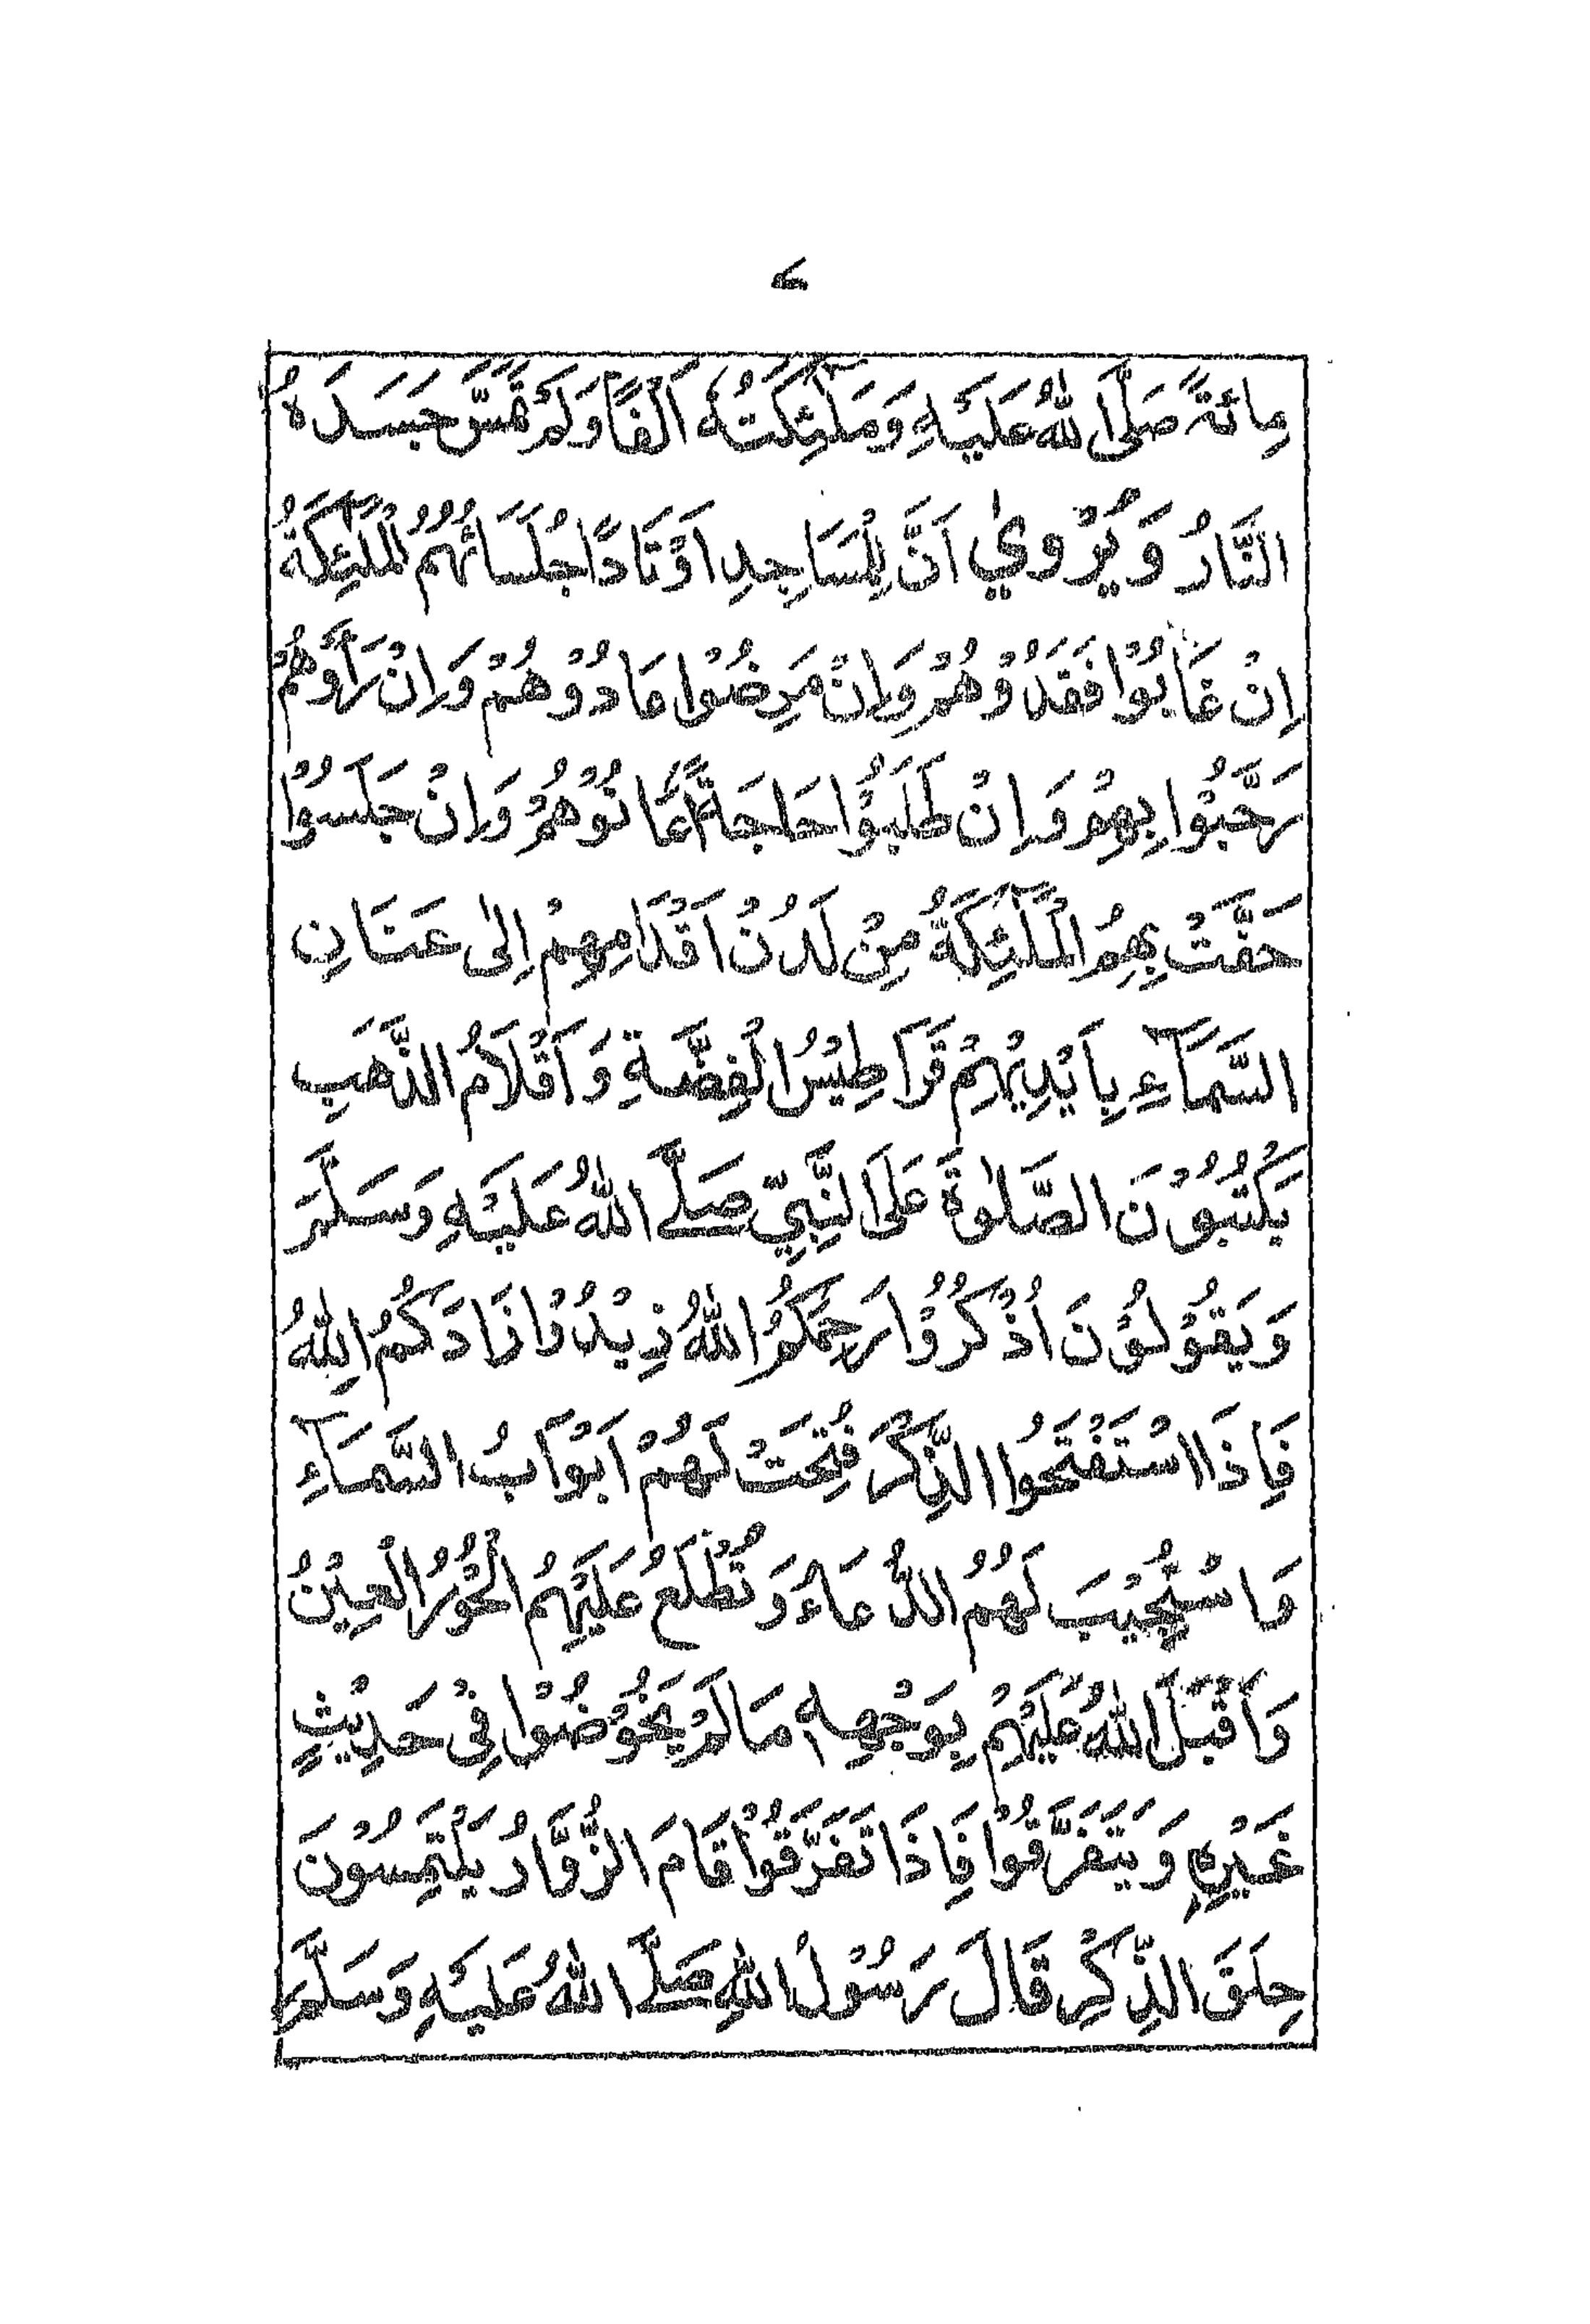 مِائَةً صَلَّى اللهُ عَلَيْهِ وَمَلٰٓئِكَتُهٗ اَلْفًا وَلَمْ تَمَسَّ جَسَدَهُ
النَّارُ وَيُرْوٰي اَنَّ لِلْمَسَاجِدِ اَوْتَادًا جُلَسَائُهُمُ الْمَلٰٓئِكَةُ
اِنْ غَابُوْا فَقَدُوْهُمْ وَاِنْ مَرِضُوْا عَادُوْهُمْ وَاِنْ رَاَوْهُمْ
رَحَّبُوْا بِهِمْ وَاِنْ طَلَبُوْا حَاجَةً اَعَانُوْهُمْ وَاِنْ جَلَسُوْا
حَفَّتْ بِهِمُ الْمَلٰٓئِكَةُ مِنْ لَدُنْ اَقْدَامِهِمْ اِلٰى عَنَانِ
السَّمَآءِ بِاَيْدِيْهِمْ قَرَاطِيْسُ الْفِضَّةِ وَاَقْلَامُ الذَّهَبِ
يَكْتُبُوْنَ الصَّلٰوةَ عَلَى النَّبِيِّ صَلَّے اللهُ عَلَيْهِ وَسَلَّمَ
وَيَقُوْلُوْنَ اُذْكُرُوْا رَحِمَكُمُ اللهُ زِيْدُوْا زَادَكُمُ اللهُ
فَاِذَا اسْتَفْتَحُوا الذِّكْرَ فُتِحَتْ لَهُمْ اَبْوَابُ السَّمَآءِ
وَاسْتُجِيْبَ لَهُمُ الدُّعَاءُ وَتُطْلَعُ عَلَيْهِمُ الْحُوْرُ الْعِيْنُ
وَاَقْبَلَ اللهُ عَلَيْهِمْ بِوَجْهِهٖ مَا لَمْ يَخُوْضُوْا فِيْ حَدِيْثٍ
غَيْرِهٖ وَيَتَفَرَّقُوْا فَاِذَا تَفَرَّقُوْا قَامَ الزُّوَّارُ يَلْتَمِسُوْنَ
حِلَقَ الذِّكْرِ قَالَ رَسُوْلُ اللهِ صَلَّے اللهُ عَلَيْهِ وَسَلَّمَ